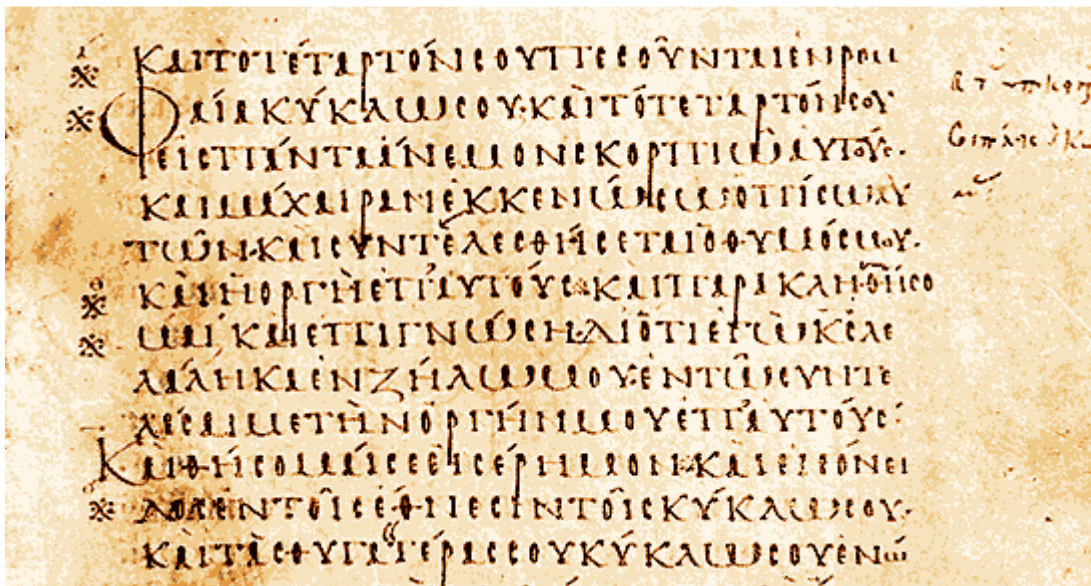 ΚΑΙΤΟΤΕΤΑΡΤΟΝCΟΥΠΕCΟΥΝΤΑΙΕΝΡΟΜ
ΦΑΙΑΚΥΚΛΩCΟΥ·ΚΑΙΤΟΤΕΤΑΡΤΟΝCΟΥ
ΕΙCΠΑΝΤΑΑΝΕΜΟΝCΚΟΡΠΙΩΑΥΤΟΥC·
ΚΑΙΜΑΧΑΙΡΑΝΕΚΚΕΝΩCΩΟΠΙCΩΑΥ
ΤΩΝ·ΚΑΙCΥΝΤΕΛΕCΘΗCΕΤΑΙΟΘΥΜΟCΜΟΥ·
ΚΑΙΗΟΡΓΗΕΠΑΥΤΟΥC·ΚΑΙΠΑΡΑΚΛΗΘΗCΟ
ΜΑΙΚΑΙΕΠΙΓΝΩCΗ·ΔΙΟΤΙΕΓΩΚCΛΕ
ΛΑΛΗΚΑΕΝΖΗΛΩΜΟΥ·ΕΝΤΩCΥΝΤΕ
ΛΕCΑΙΜΕΤΗΝΟΡΓΗΝΜΟΥΕΠΑΥΤΟΥC·
ΚΑΙΘΗCΟΜΑΙCΕΕΙCΕΡΗΜΟΝ·ΚΑΙΕΙCΟΝΕΙ
ΔΟCΕΝΤΟΙCΕΘΝΕCΙΝΤΟΙCΚΥΚΛΩCΟΥ·
ΚΑΙΤΑCΘΥΓΑΤΕΡΑCCΟΥΚΥΚΛΩCΟΥΕΝΩ